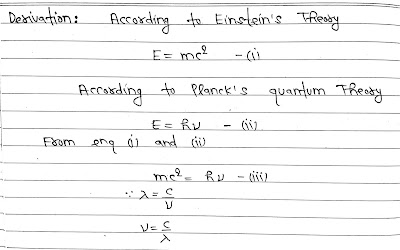 Derivation: According to Einstein's Theory
E = mc² - (i)
According to Planck's quantum Theory
E = hν - (ii)
From enq (i) and (ii)
mc² = hν - (iii)
∵ λ = c/ν
ν = c/λ